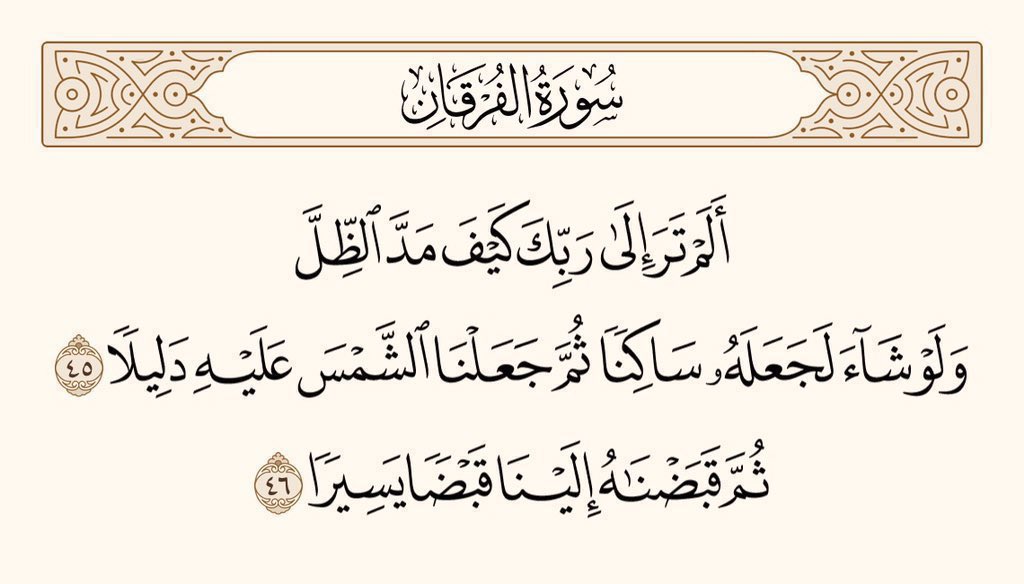 سُورَةُ الفُرْقَانِ
أَلَمۡ تَرَ إِلَىٰ رَبِّكَ كَيۡفَ مَدَّ ٱلظِّلَّ
وَلَوۡ شَآءَ لَجَعَلَهُۥ سَاكِنٗا ثُمَّ جَعَلۡنَا ٱلشَّمۡسَ عَلَيۡهِ دَلِيلٗا ٤٥
ثُمَّ قَبَضۡنَٰهُ إِلَيۡنَا قَبۡضٗا يَسِيرٗا ٤٦